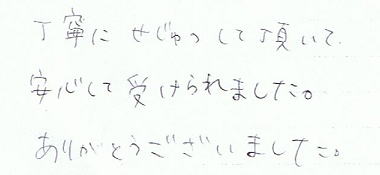 丁寧にせじゅつして頂いて、
安心して受けられました。
ありがとうございました。